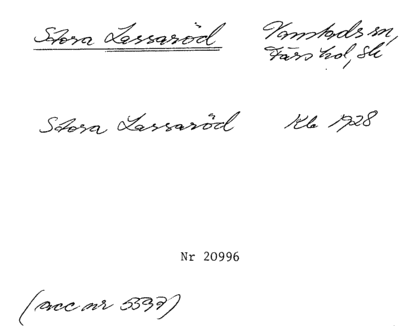 Stora Lassaröd Vamstads sn,
Färs hd, Sk
Stora Lassaröd Kb 1928
Nr 20996
(acc nr 5597)